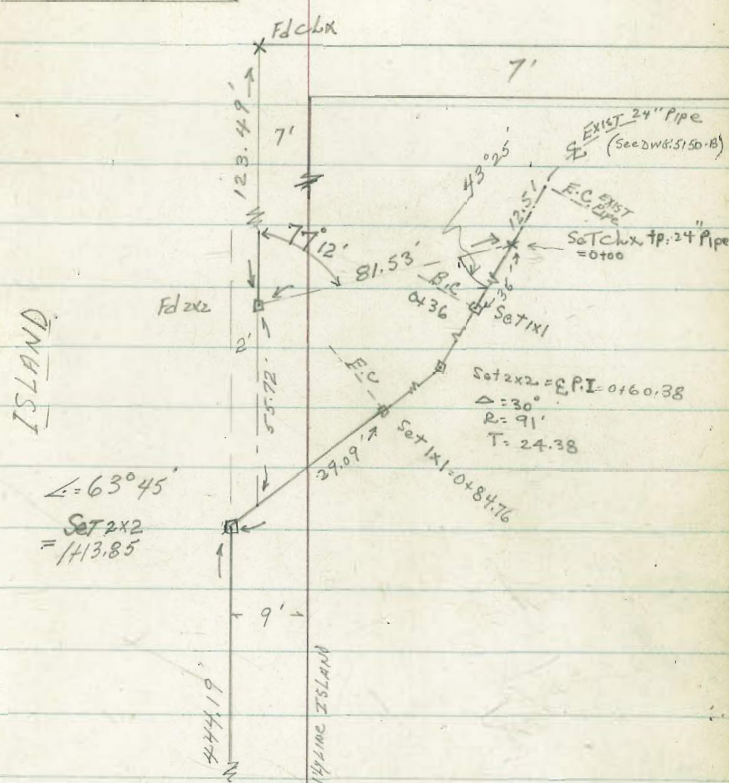 Fd CLX
7'
123.49'
7'
EXIST 24" Pipe
(See DWG. 5150-B)
43°25'
12.51
E.C. EXIST
Pipe
77°
12'
SeT CLX tp. 24" Pipe
=0+00
81.53'
B.C
0+36
36'
Fd 2x2
Set 1x1
ISLAND
2'
E.C
55.72'
Set 2x2 = ℄ P.I = 0+60.38
Δ = 30°
R = 91'
T = 24.38
29.09'
Set 1x1 = 0+84.76
∠ = 63°45'
SeT 2x2
= 1+13.85
9'
444.19'
ISLAND